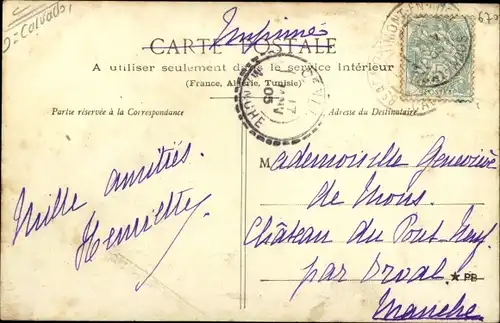 D-Calvados
670
Imprimé
CARTE POSTALE
A utiliser seulement dans le service Intérieur
(France, Algérie, Tunisie)
Partie réservée à la Correspondance
Adresse du Destinataire
17
05
MANCHE
Mademoiselle Geneviève
de Mons.
Château du Pont-Neuf
par
Manche.
★ PB
Mille amitiés.
Henriette.